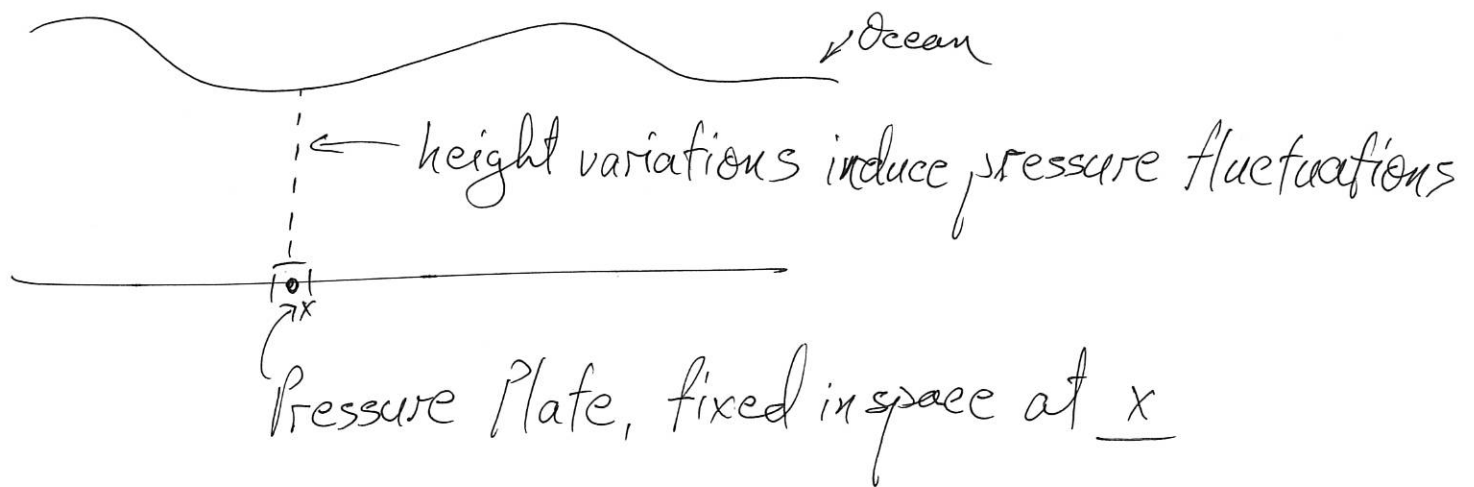 Ocean
height variations induce pressure fluctuations
x
Pressure Plate, fixed in space at x